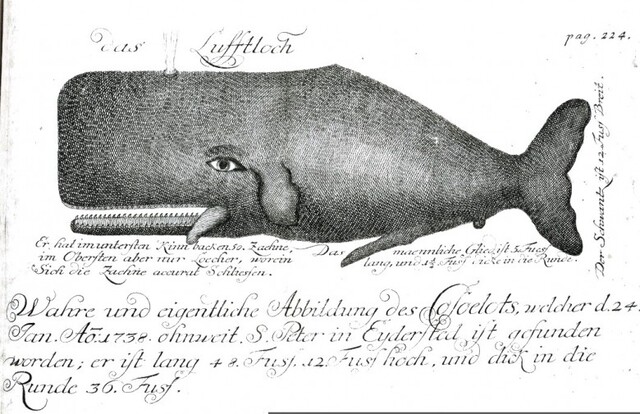 das Lufftloch
pag. 224.
Der Schwantz ist 12 Fus Breit.
Er hat im untersten Kinn backen 50. Zaehne,
im Obersten aber nur Loecher, worein
Sich die Zaehne accurat Schliessen.
Das maennliche Glied ist 5 Fus
lang, und in die Runde.
Wahre und eigentliche Abbildung des welcher d. 24.
Jan. Ao: 1738. ohnweit S. Peter in Eydersted, ist gefunden
worden; er ist lang 48. Fus. 12. Fus hoch, und dick in die
Runde 36. Fus.